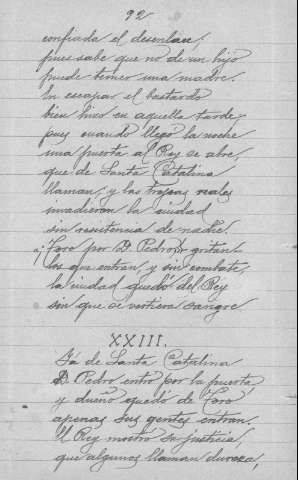 92
confiada el desenlace,
pues sabe que no de un hijo
puede temer una madre.
En escapar el bastardo
bien hizo en aquella tarde,
pues cuando llegó la noche
una puerta al Rey se abre,
que de Santa Catalina
llaman, y las tropas reales
invadieron la ciudad
sin resistencia de nadie.
¡Toro por D. Pedro! gritan
los que entran, y sin combate,
la ciudad quedó del Rey
sin que se vertiera sangre
XXIII.
Ya de Santa Catalina
D. Pedro entró por la puerta
y dueño quedó de Toro
apenas sus gentes entran.
El Rey mostró su justicia,
que algunos llaman dureza,